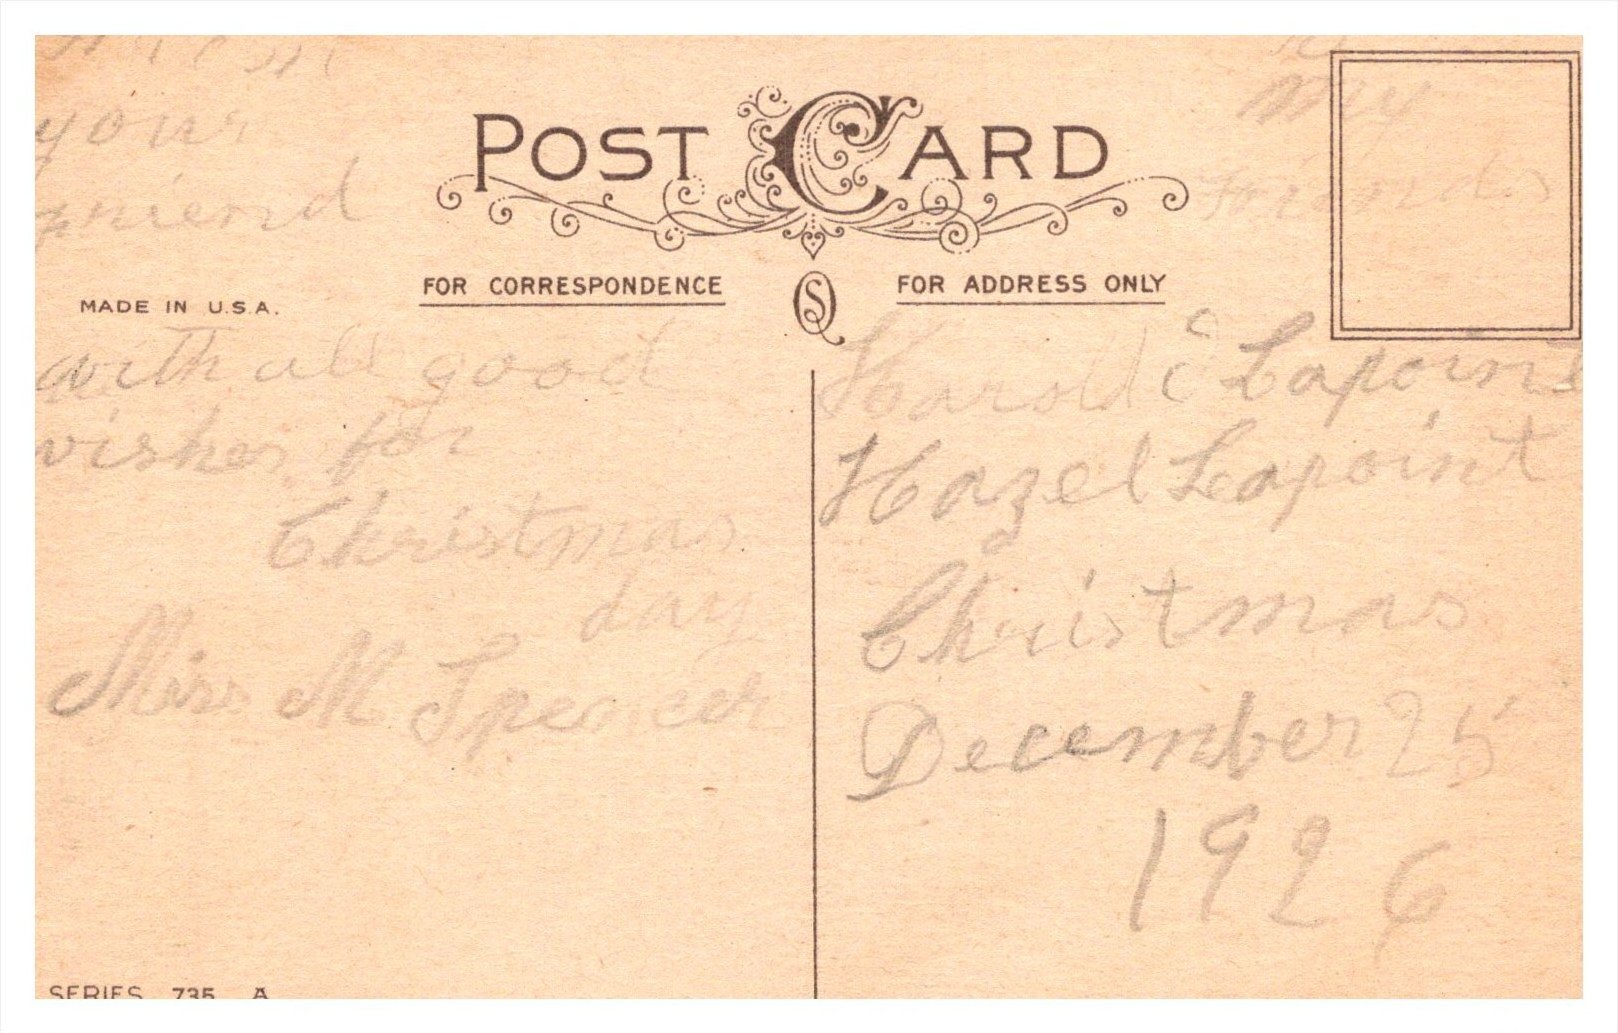 From
your
friend
POST CARD
FOR CORRESPONDENCE
MADE IN U.S.A.
with all good
wishes for
Christmas
day
Miss M Spencer
SERIES 735 A
To
my
friends
FOR ADDRESS ONLY
Harold Lapoint
Hazel Lapoint
Christmas
December 25
1926